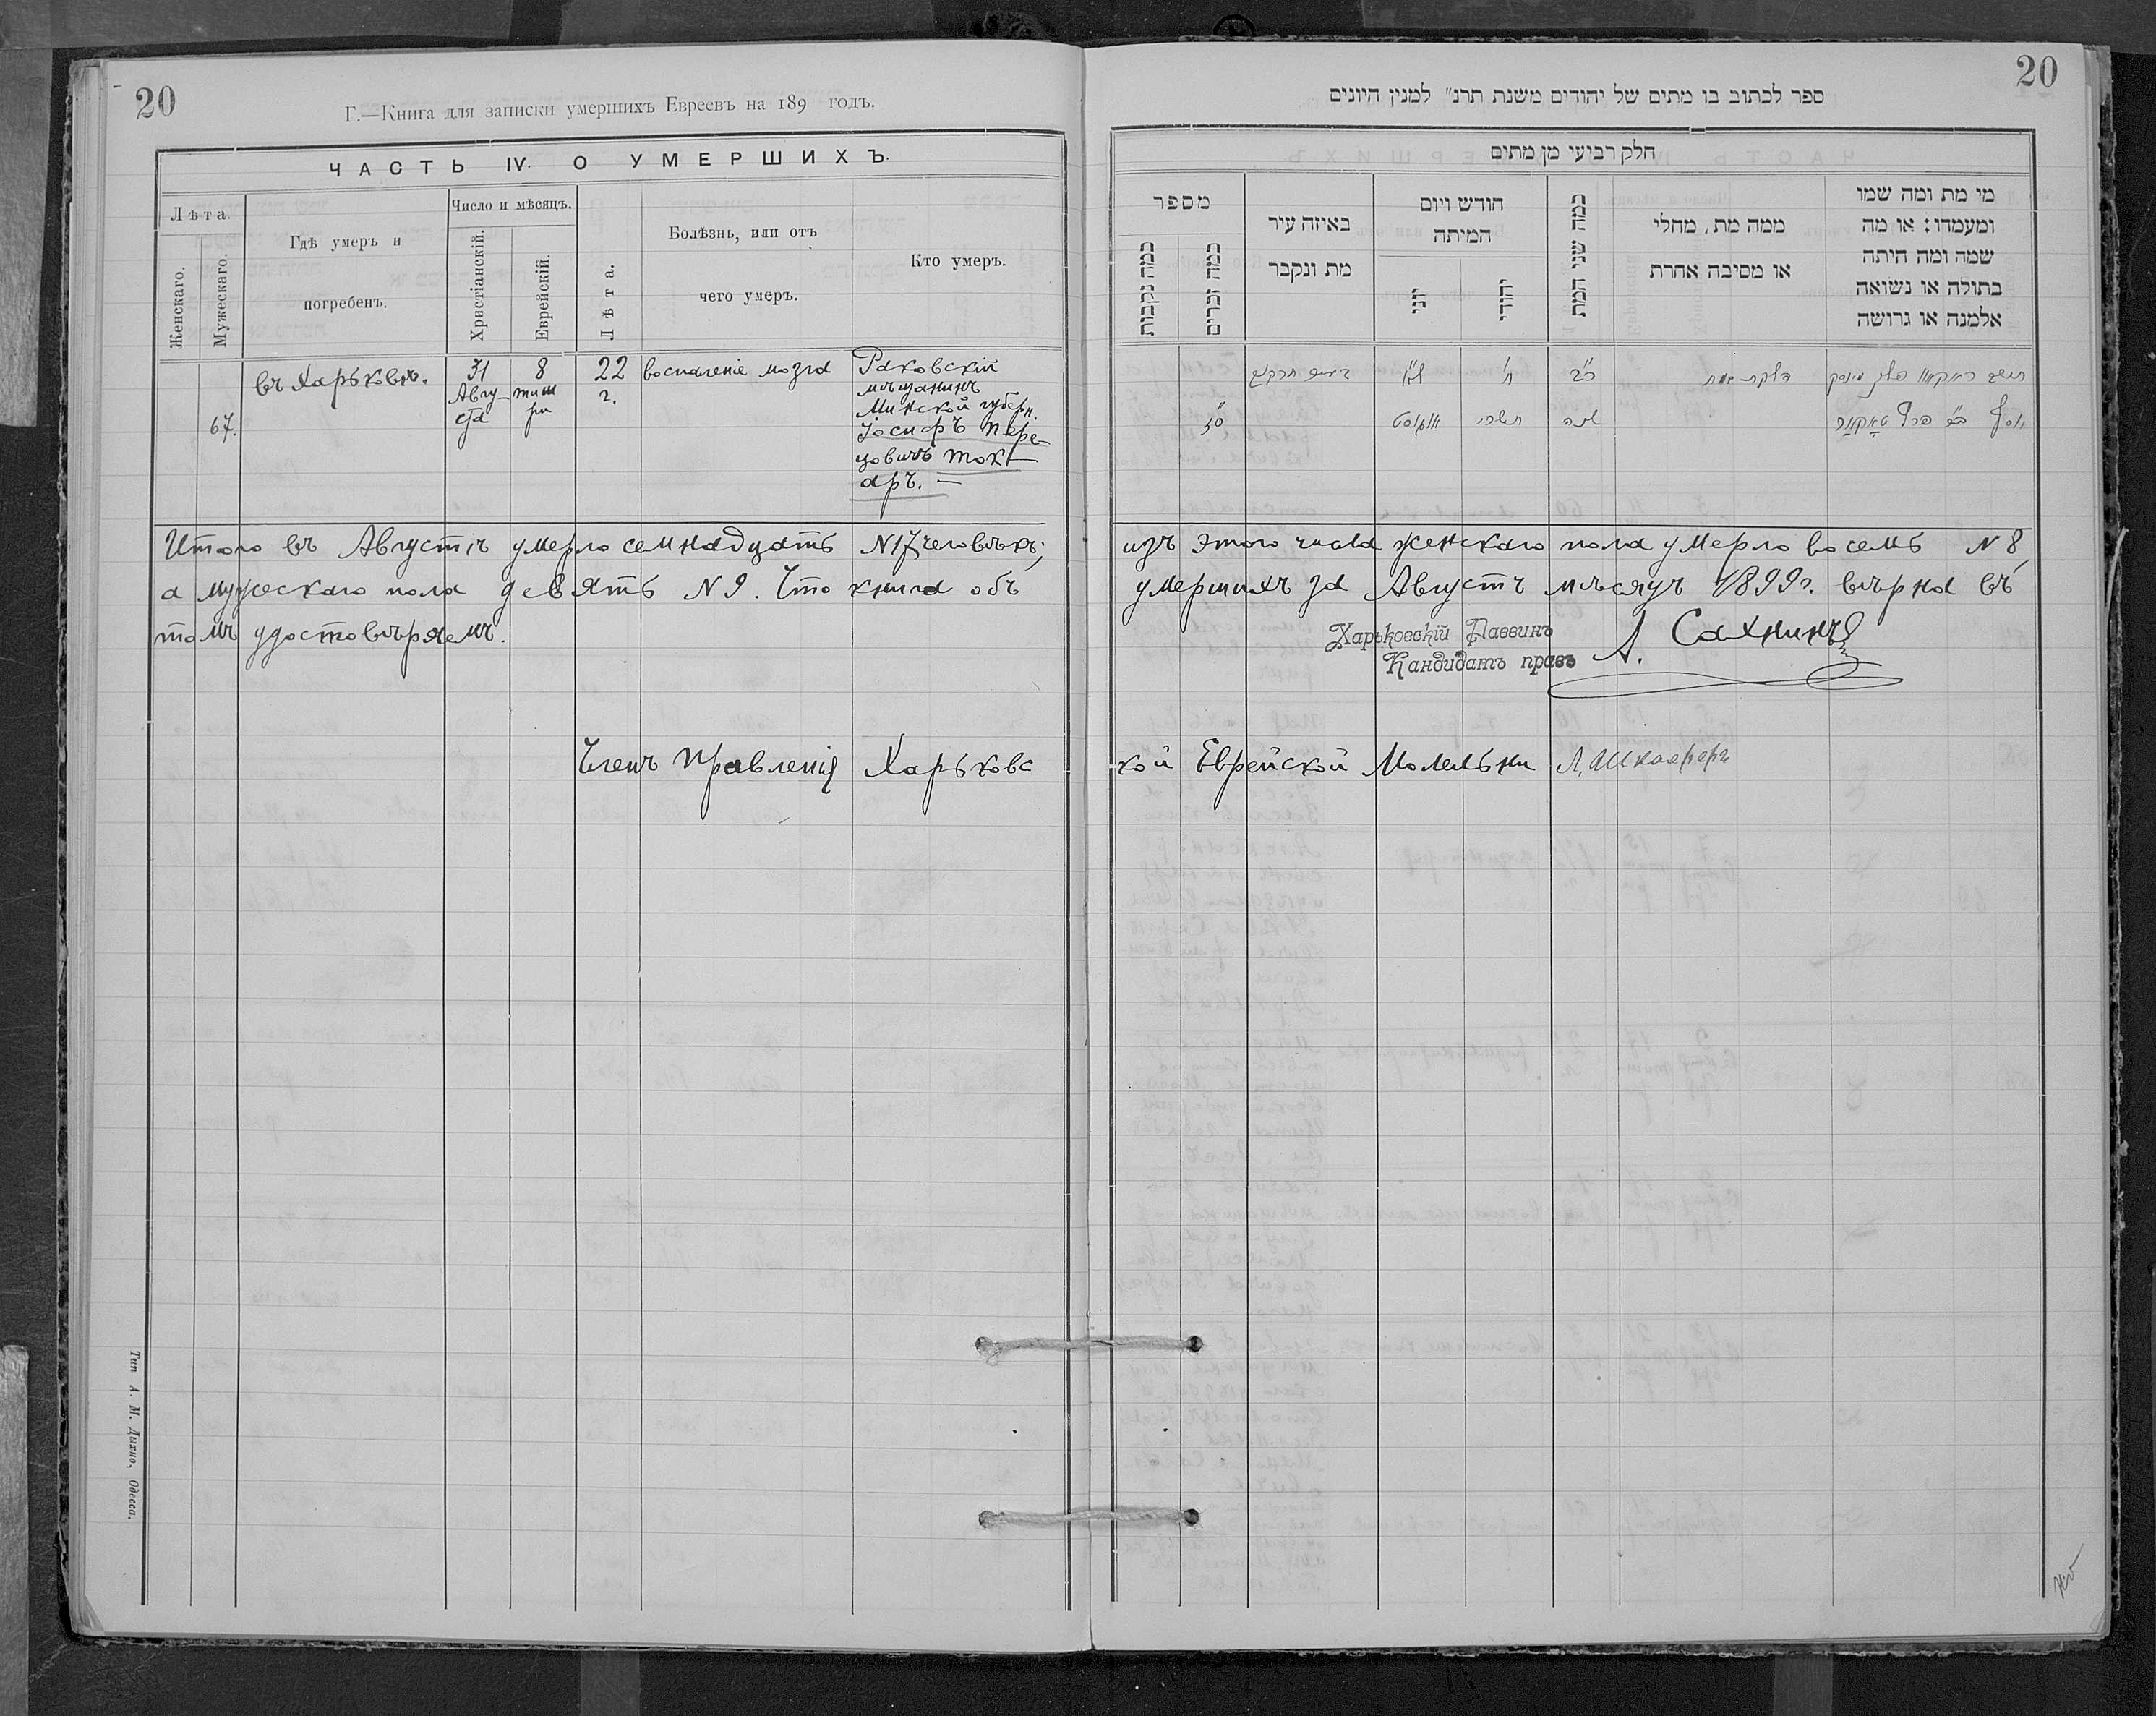 20
Г.—Книга для записки умершихъ Евреевъ на 189 годъ.
ЧАСТЬ IV. О УМЕРШИХЪ.
Лѣта.
Женскаго.
Мужескаго.
Гдѣ умеръ и
погребенъ.
Число и мѣсяцъ.
Христіанскій.
Еврейскій.
Лѣта.
Болѣзнь, или отъ
чего умеръ.
Кто умеръ.
67.
въ Харьковѣ.
31
Авгу-
ста
8
тиш
ри
22
г.
воспаленіе мозга
Раковскій
мѣщанинъ
Минской губерн.
Іосифъ Пере-
цовичъ Ток-
аръ. —
Итого въ Августѣ умерло семнадцать N17 человѣкъ,
а мужескаго пола девять N 9. Что книга объ
томъ удостовѣряемъ.
Членъ Правленія Харьковс
Тип А. М. Дыхно, Одесса.
20
ספר לכתוב בו מתים של יהודים משנת תרנ״ למנין היונים
חלק רביעי מן מתים
מספר
כמה נקבות
כמה זכרים
באיזה עיר
מת ונקבר
חודש ויום
המיתה
יוני
יהודי
כמה שני המת
ממה מת, מחלי
או מסיבה אחרת
מי מת ומה שמו
ומעמדו; או מה
שמה ומה היתה
בתולה או נשואה
אלמנה או גרושה
ס״ז
ל״א
אווגוסט
ח׳
תשרי
כ״ב
שנה
изъ этого числа женскаго пола умерло восемь N 8,
умершихъ за Августъ мѣсяцъ 1899г. вѣрна въ
Харьковскій Раввинъ
Кандидатъ правъ А. Сахнинъ
кой Еврейской Молельни